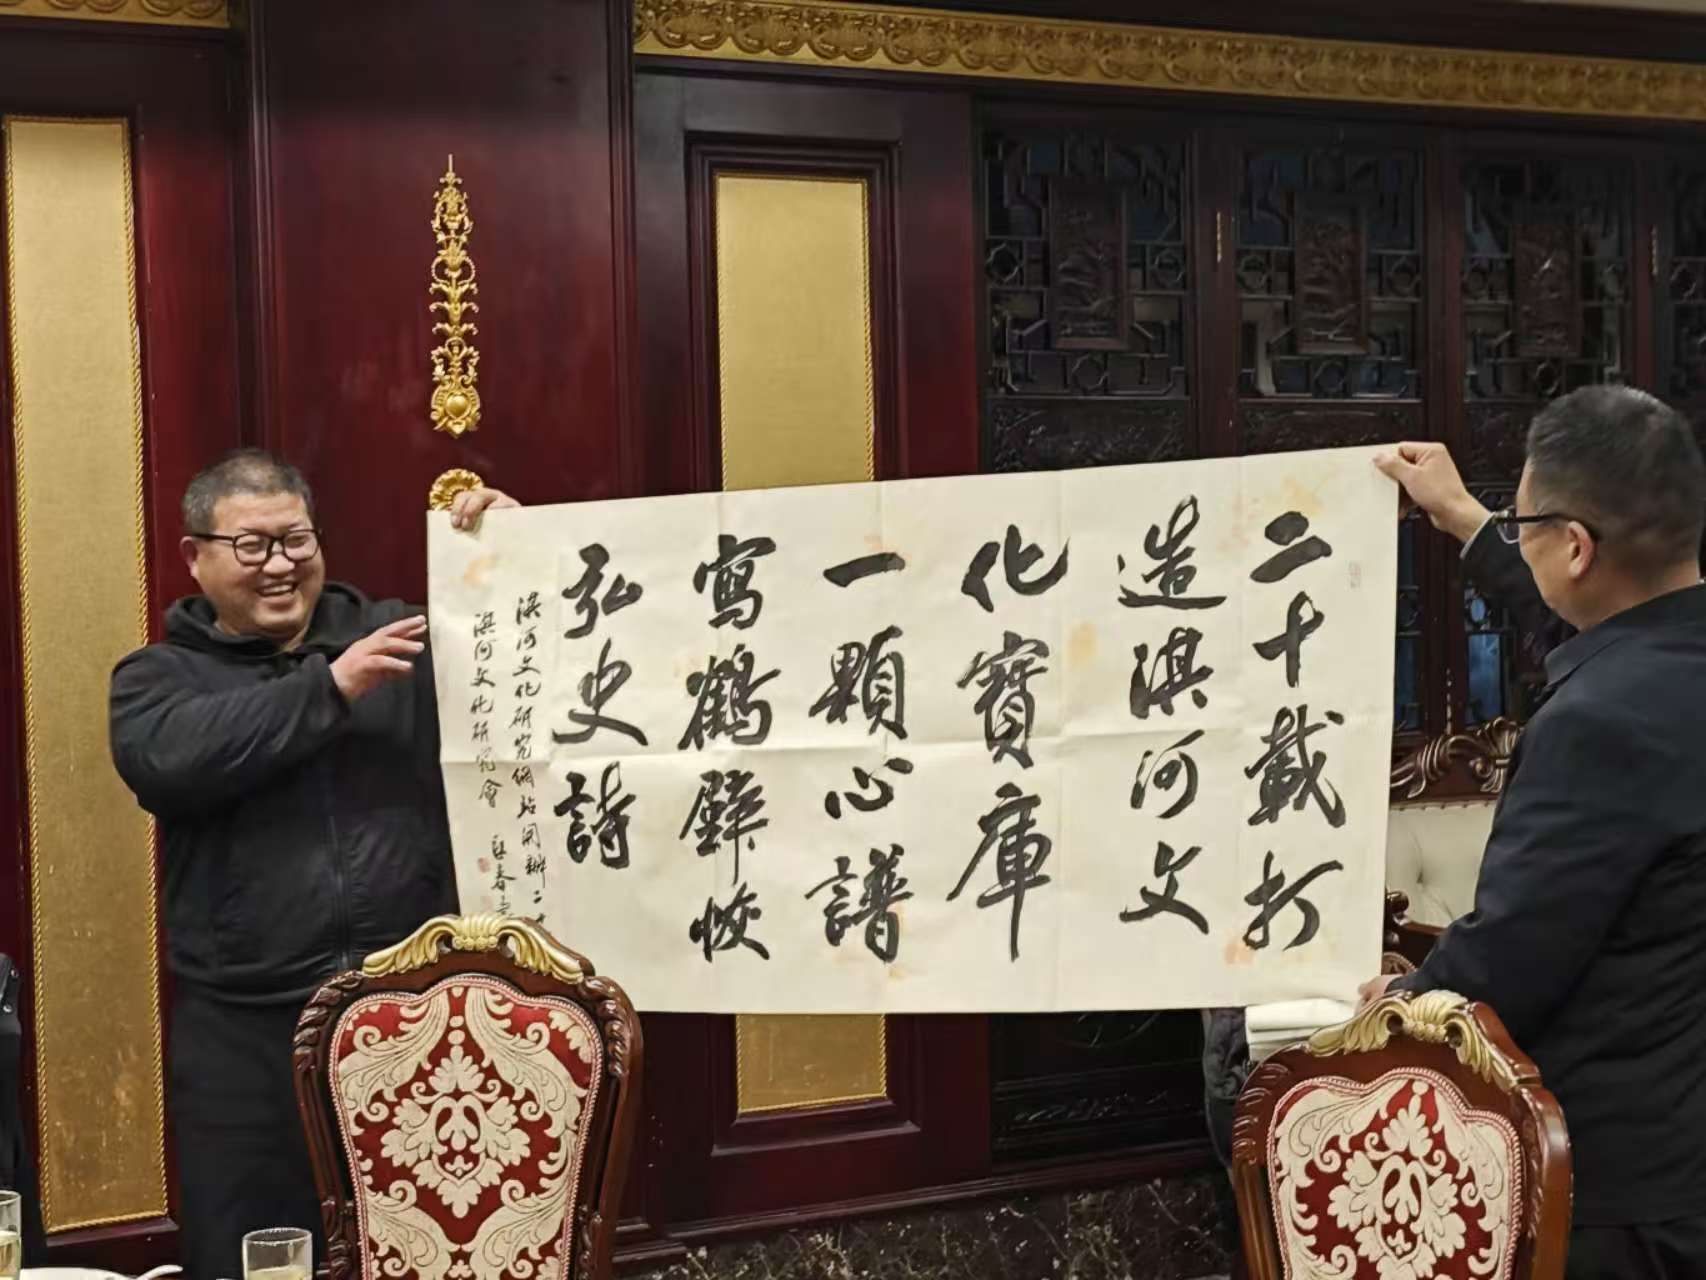 二十載打
造淇河文
化寳庫
一顆心譜
寫鶴壁恢
弘史詩
淇河文化研究網站開辦二十
淇河文化研究會